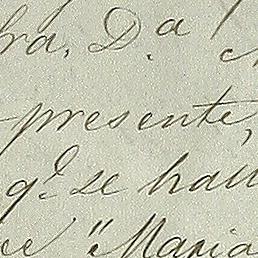 bra, D.ª
presente,
q.e se hall
"Maria